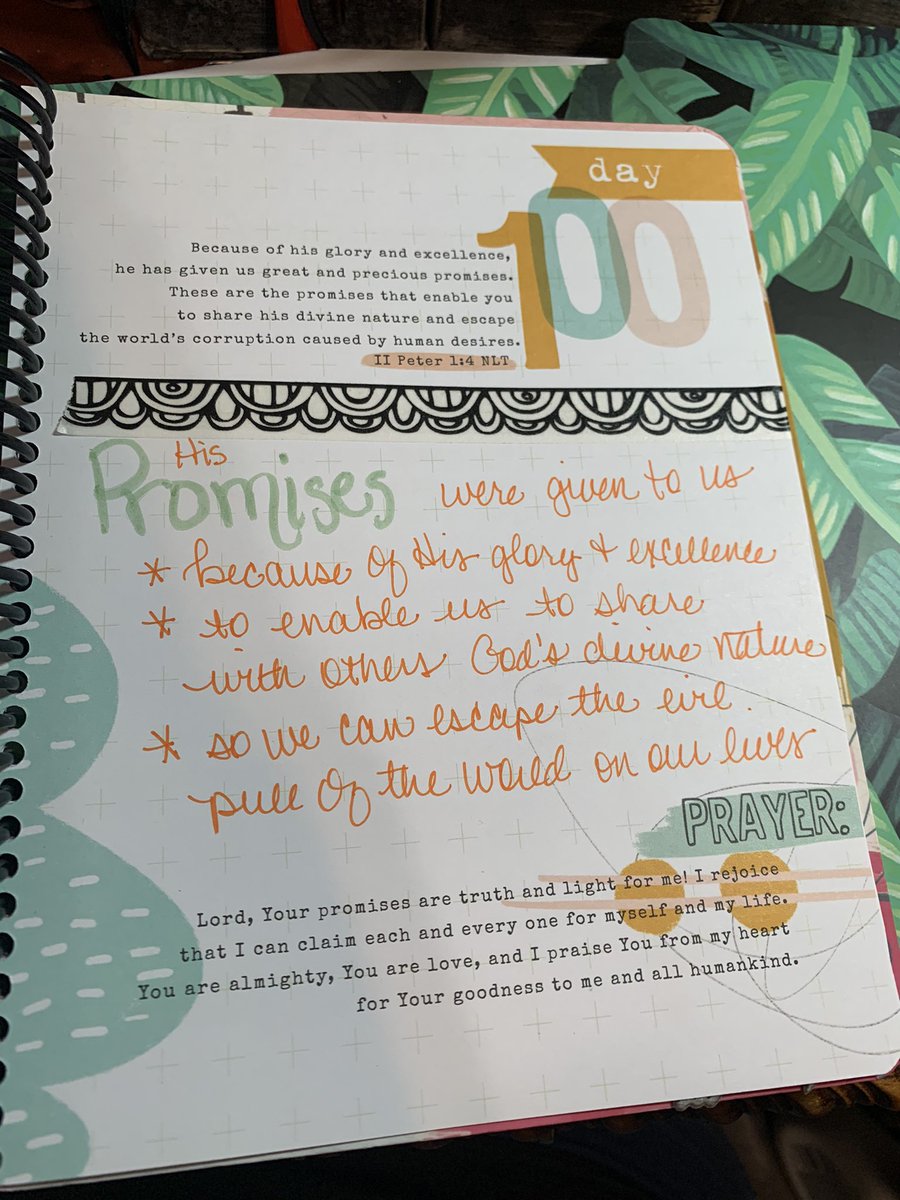 day
100
Because of his glory and excellence,
he has given us great and precious promises.
These are the promises that enable you
to share his divine nature and escape
the world's corruption caused by human desires.
II Peter 1:4 NLT
His
Promises were given to us
* because of His glory + excellence
* to enable us to share
with others God's divine nature
* so we can escape the evil
pull of the world on our lives
PRAYER:
Lord, Your promises are truth and light for me! I rejoice
that I can claim each and every one for myself and my life.
You are almighty, You are love, and I praise You from my heart
for Your goodness to me and all humankind.